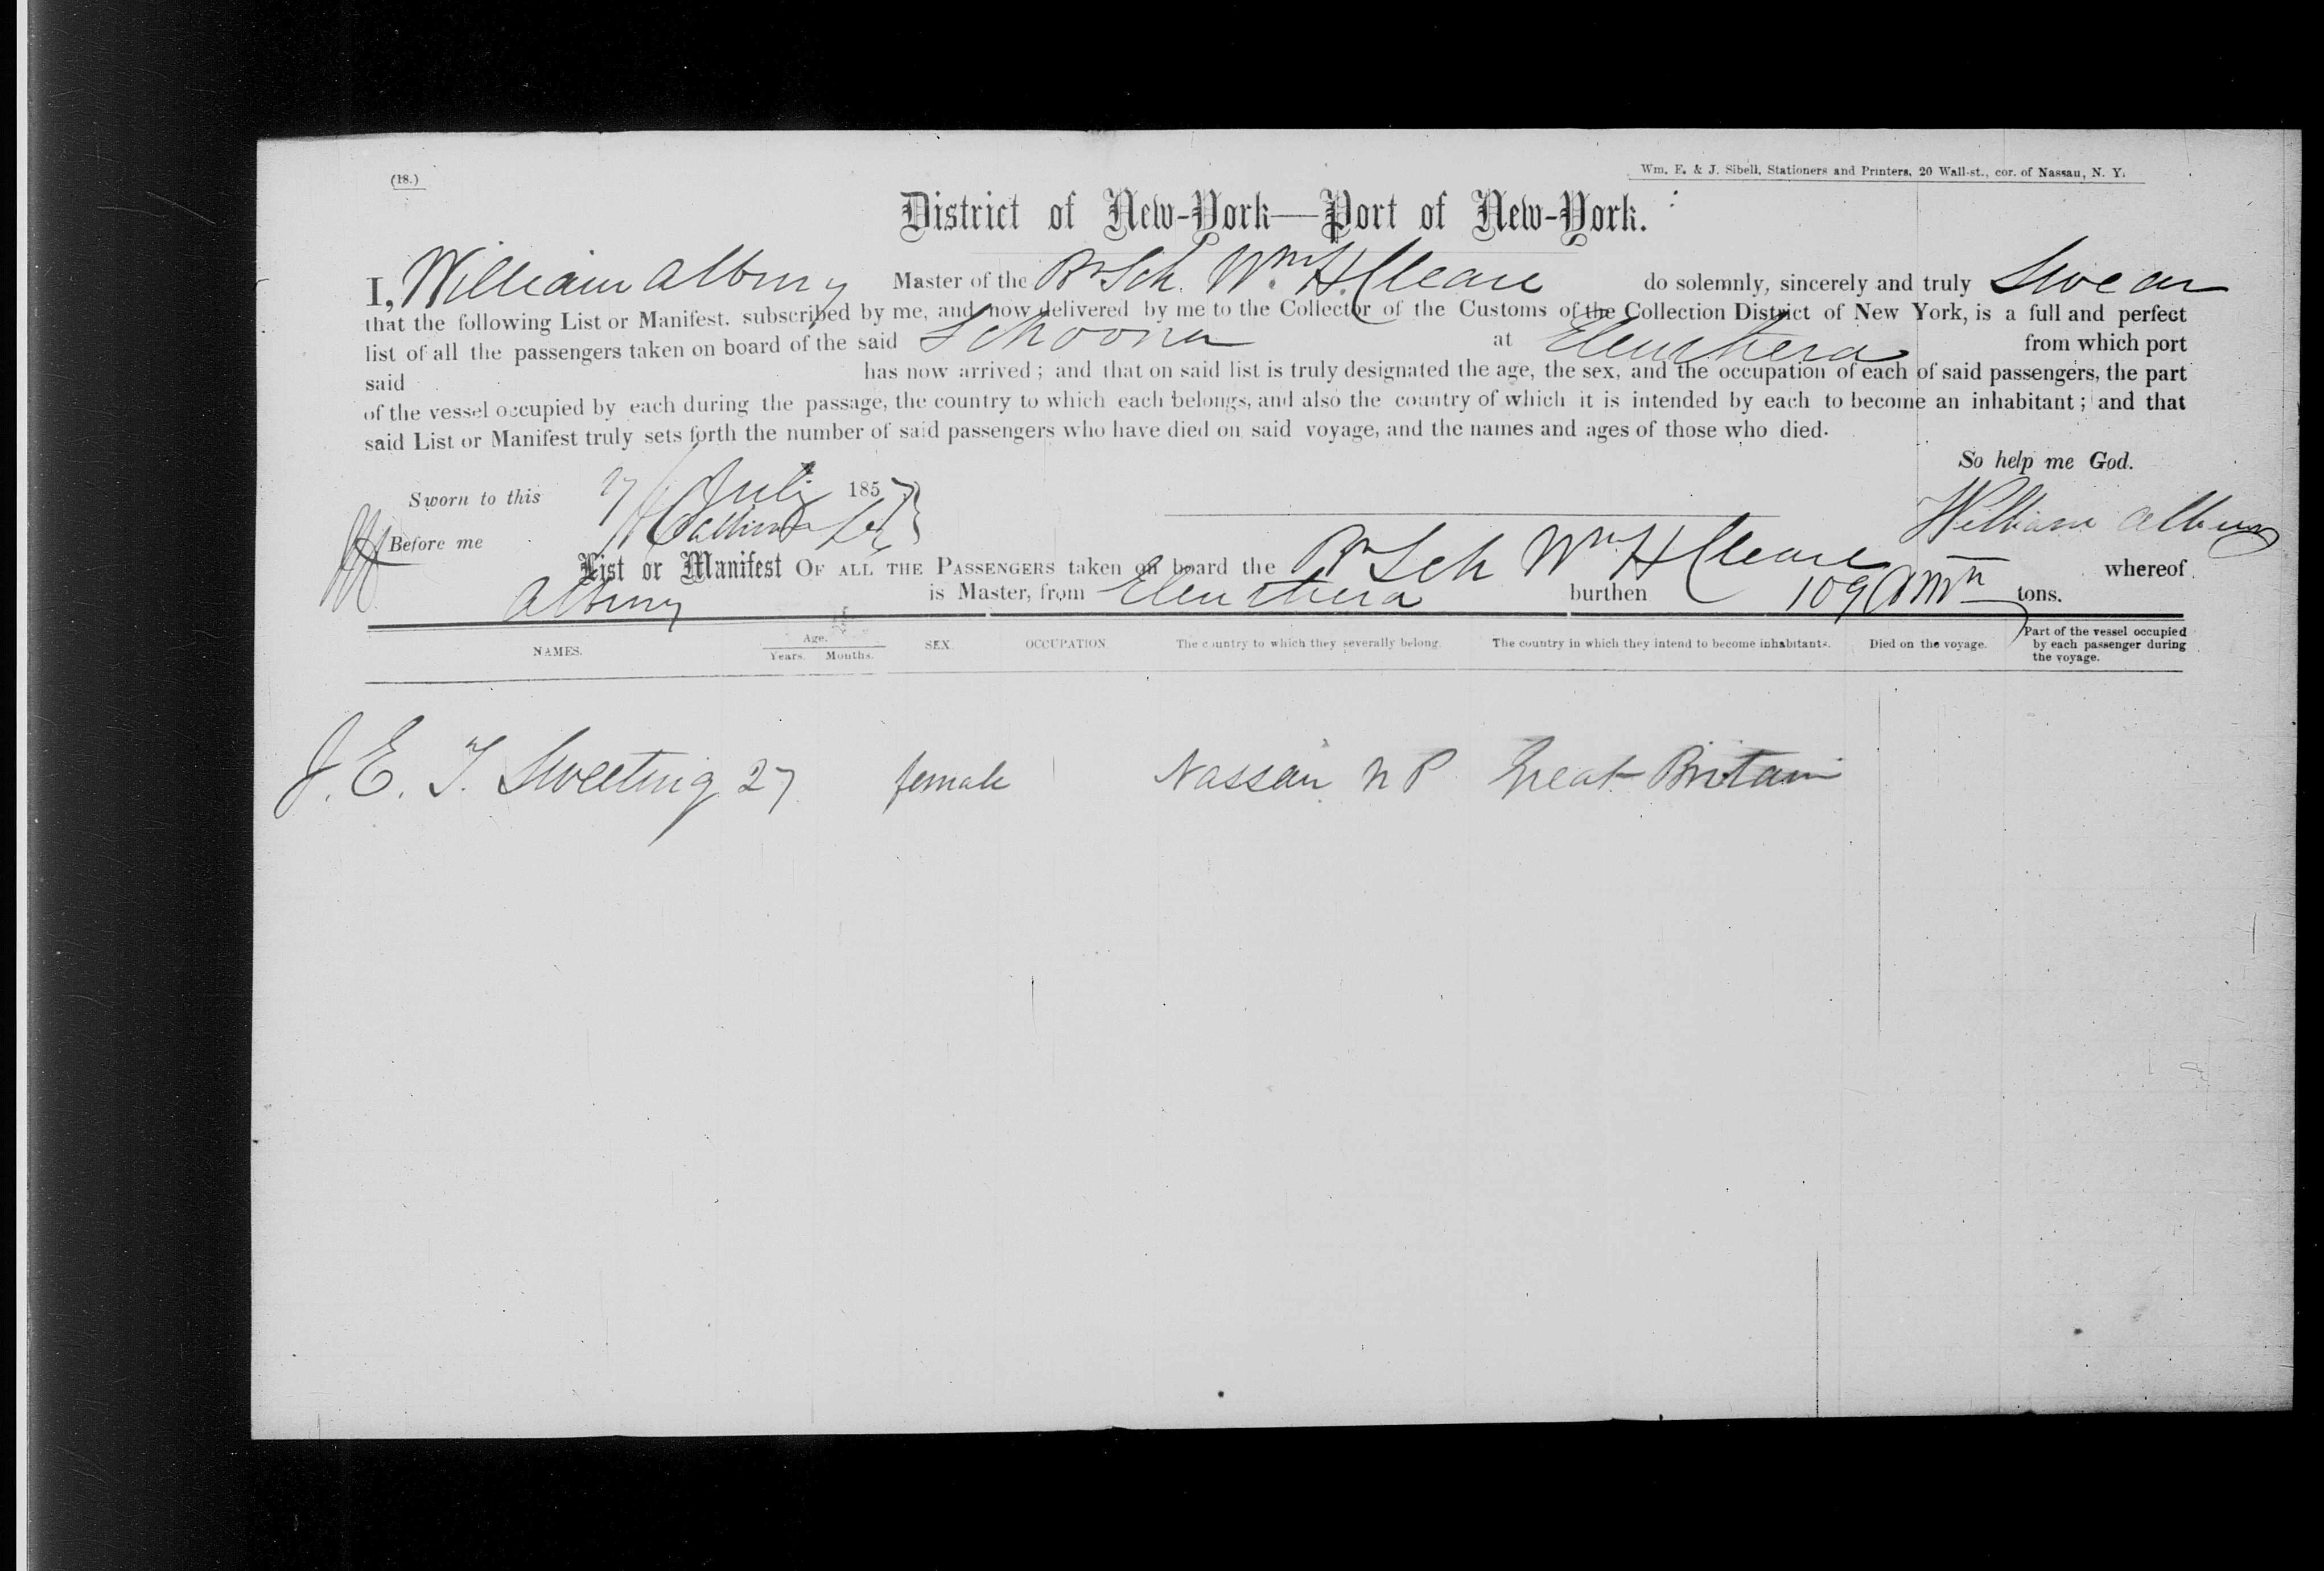 (18.)
Wm. E. & J. Sibell, Stationers and Printers, 20 Wall-st., cor. of Nassau, N. Y.
District of New-York—Port of New-York.
I, William Albury Master of the Br Sch. Wm. H. Cleare do solemnly, sincerely and truly Swear
that the following List or Manifest. subscribed by me, and now delivered by me to the Collector of the Customs of the Collection District of New York, is a full and perfect
list of all the passengers taken on board of the said Schooner at Eleuthera from which port
said has now arrived; and that on said list is truly designated the age, the sex, and the occupation of each of said passengers, the part
of the vessel occupied by each during the passage, the country to which each belongs, and also the country of which it is intended by each to become an inhabitant; and that
said List or Manifest truly sets forth the number of said passengers who have died on said voyage, and the names and ages of those who died.
So help me God.
Sworn to this 27 July 1857
William Albury
Before me
List or Manifest OF ALL THE PASSENGERS taken on board the Br Sch Wm H Cleare whereof
Albury is Master, from Eleuthera burthen 109 tons.
NAMES. Age. Years. Months. SEX. OCCUPATION The country to which they severally belong. The country in which they intend to become inhabitants. Died on the voyage. Part of the vessel occupied by each passenger during the voyage.
J. E. T. Sweeting 27 female Nassau N P Great Britain